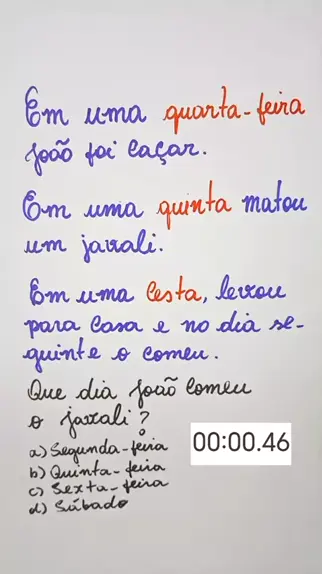 Em uma quarta-feira
João foi caçar.
Em uma quinta matou
um javali.
Em uma cesta, levou
para casa e no dia se-
guinte o comeu.
Que dia João comeu
o javali?
a) Segunda-feira
b) Quinta-feira
c) Sexta-feira
d) Sábado
00:00.46